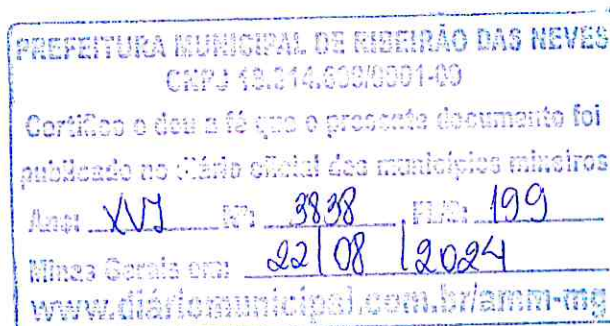 PREFEITURA MUNICIPAL DE RIBEIRÃO DAS NEVES
CNPJ 18.314.609/0001-09
Certifico e dou a fé que o presente documento foi
publicado no diário oficial dos municípios mineiros
Ano: XVI Nº: 3838 FLS: 199
Minas Gerais em: 22/08/2024
www.diáriomunicipal.com.br/amm-mg